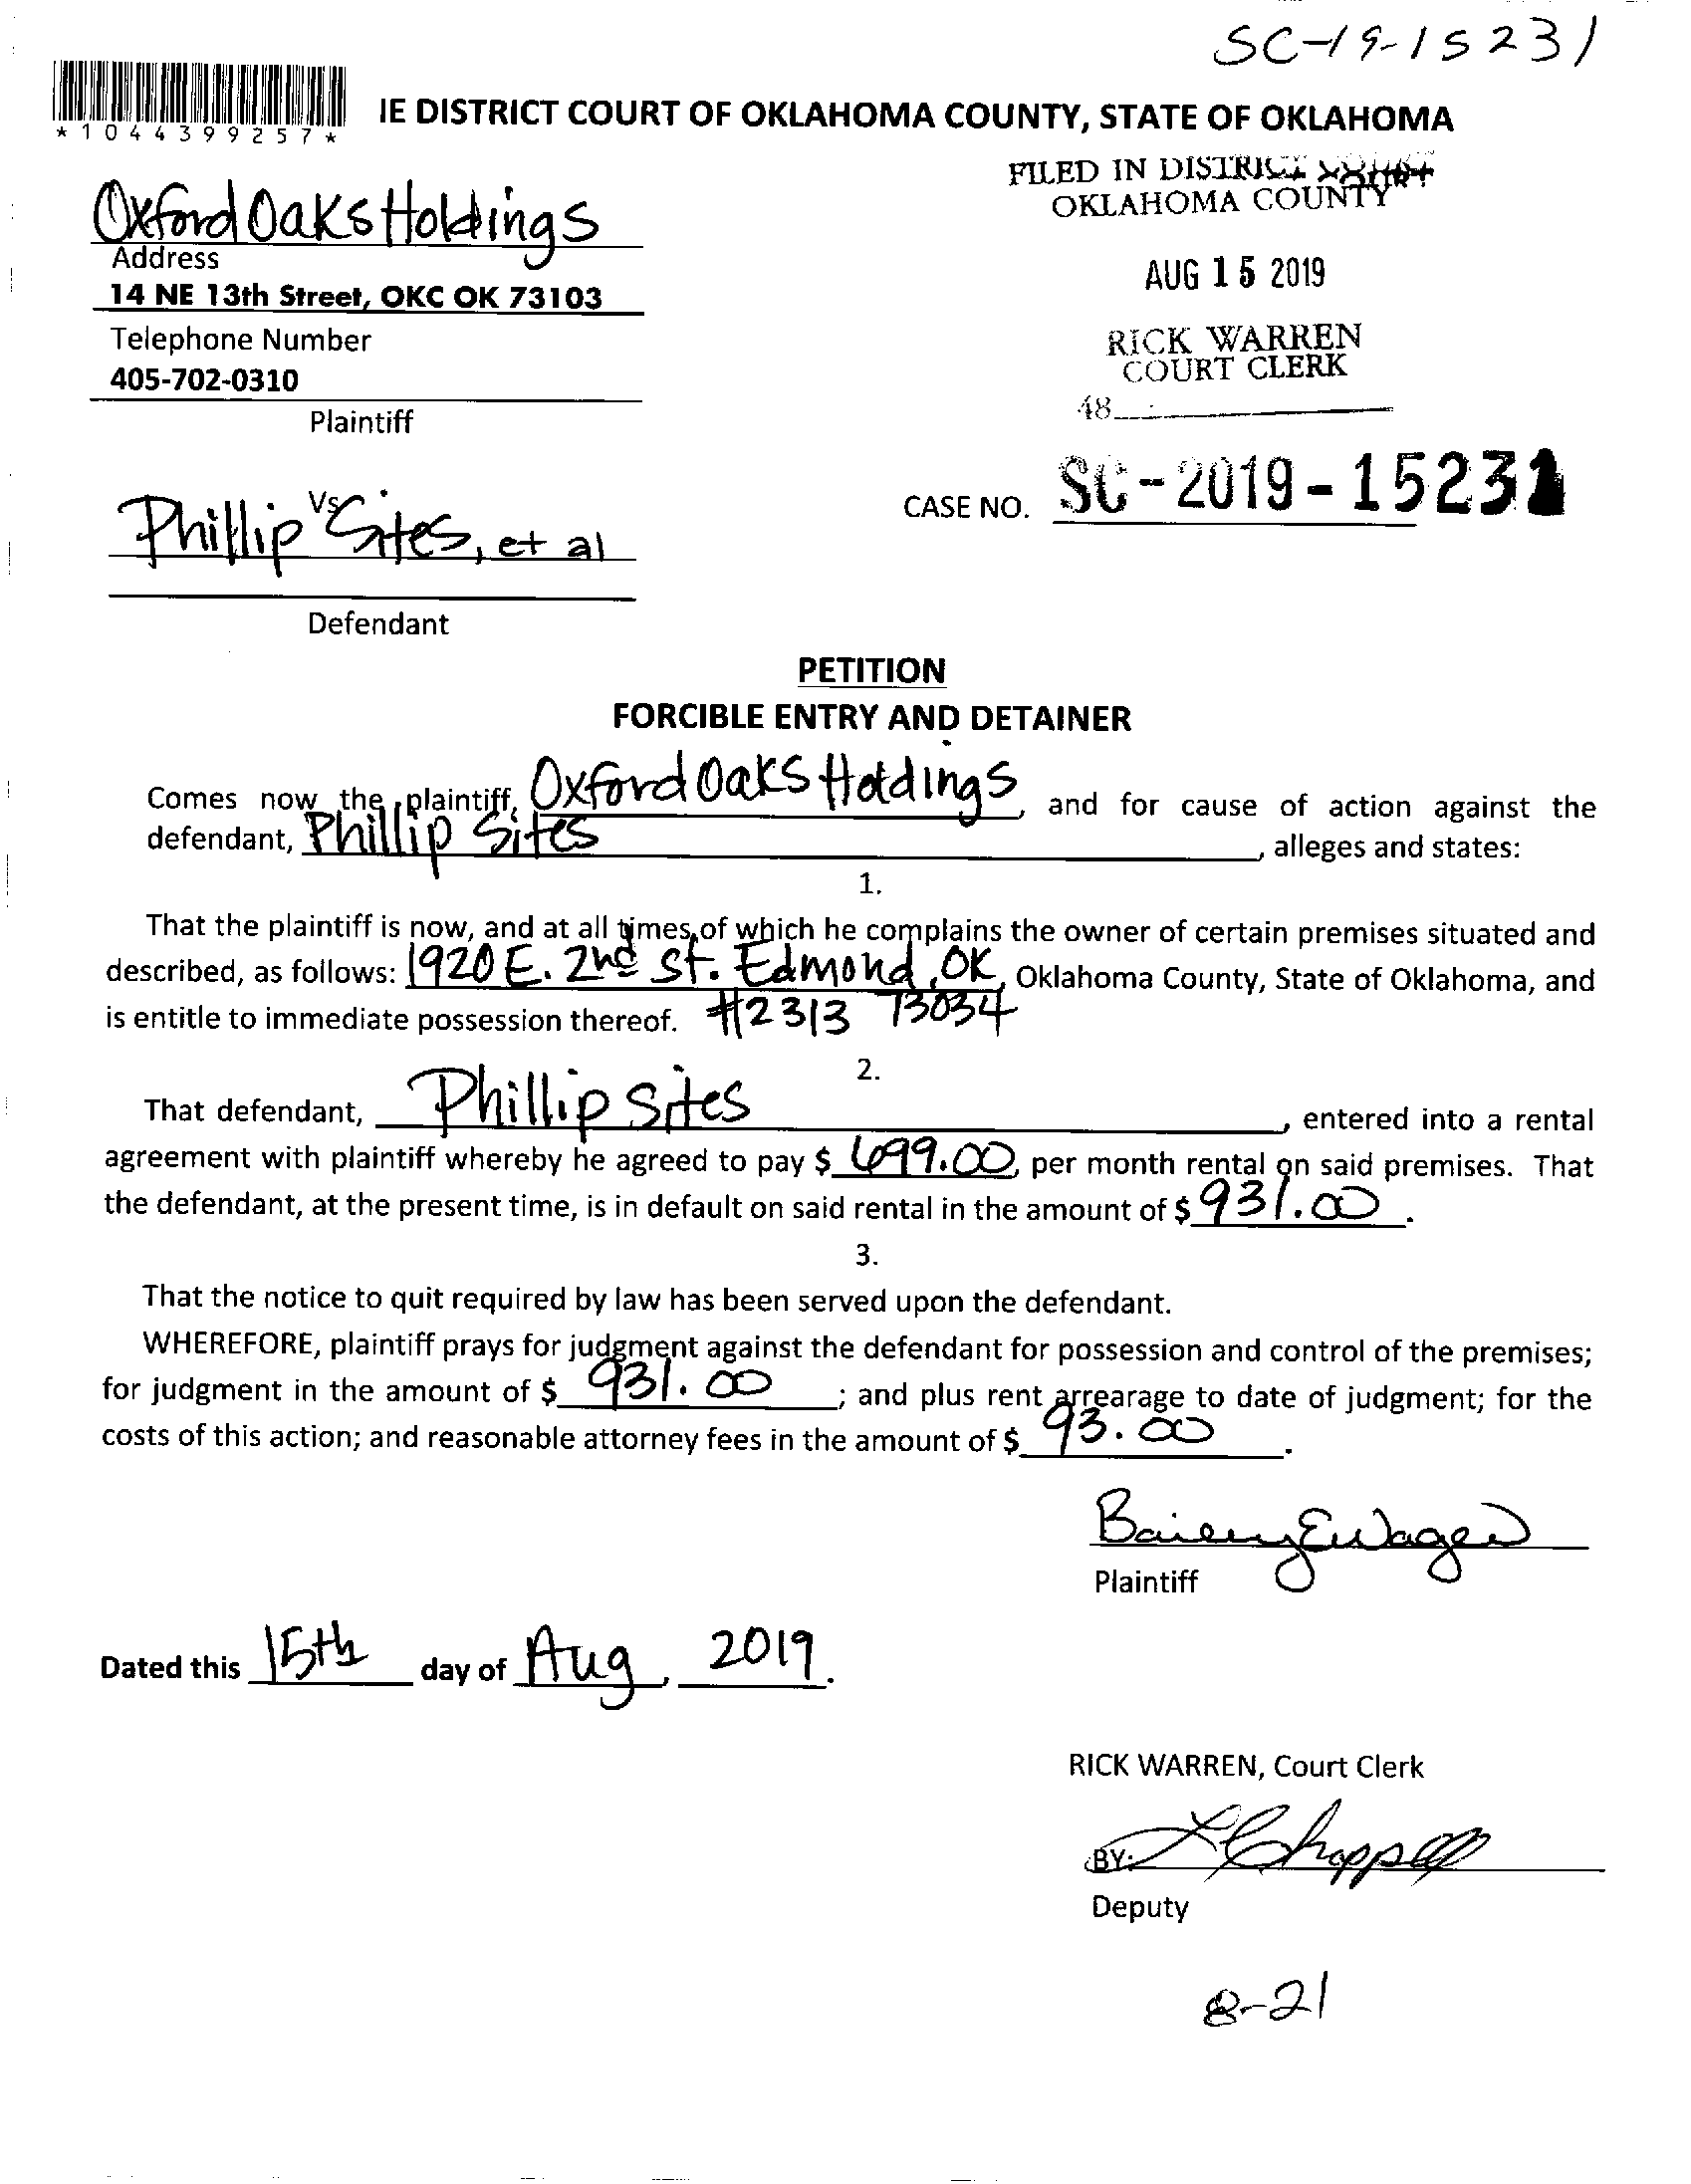 SC-19-15231
*1044399257*
IE DISTRICT COURT OF OKLAHOMA COUNTY, STATE OF OKLAHOMA
FILED IN DISTRICT COURT
OKLAHOMA COUNTY
Oxford Oaks Holdings
Address
14 NE 13th Street, OKC OK 73103
AUG 15 2019
Telephone Number
405-702-0310
RICK WARREN
COURT CLERK
48
Plaintiff
Vs.
Phillip Sites, et al
CASE NO. SC-2019-15231
Defendant
PETITION
FORCIBLE ENTRY AND DETAINER
Comes now the plaintiff, Oxford Oaks Holdings, and for cause of action against the
defendant, Phillip Sites, alleges and states:
1.
That the plaintiff is now, and at all times of which he complains the owner of certain premises situated and
described, as follows: 1920 E. 2nd St. Edmond, OK, Oklahoma County, State of Oklahoma, and
is entitle to immediate possession thereof. #2313 73034
2.
That defendant, Phillip Sites, entered into a rental
agreement with plaintiff whereby he agreed to pay $ 699.00, per month rental on said premises. That
the defendant, at the present time, is in default on said rental in the amount of $ 931.00.
3.
That the notice to quit required by law has been served upon the defendant.
WHEREFORE, plaintiff prays for judgment against the defendant for possession and control of the premises;
for judgment in the amount of $ 931.00; and plus rent arrearage to date of judgment; for the
costs of this action; and reasonable attorney fees in the amount of $ 93.00.
Plaintiff
Dated this 15th day of Aug, 2019.
RICK WARREN, Court Clerk
BY:
Deputy
8-21